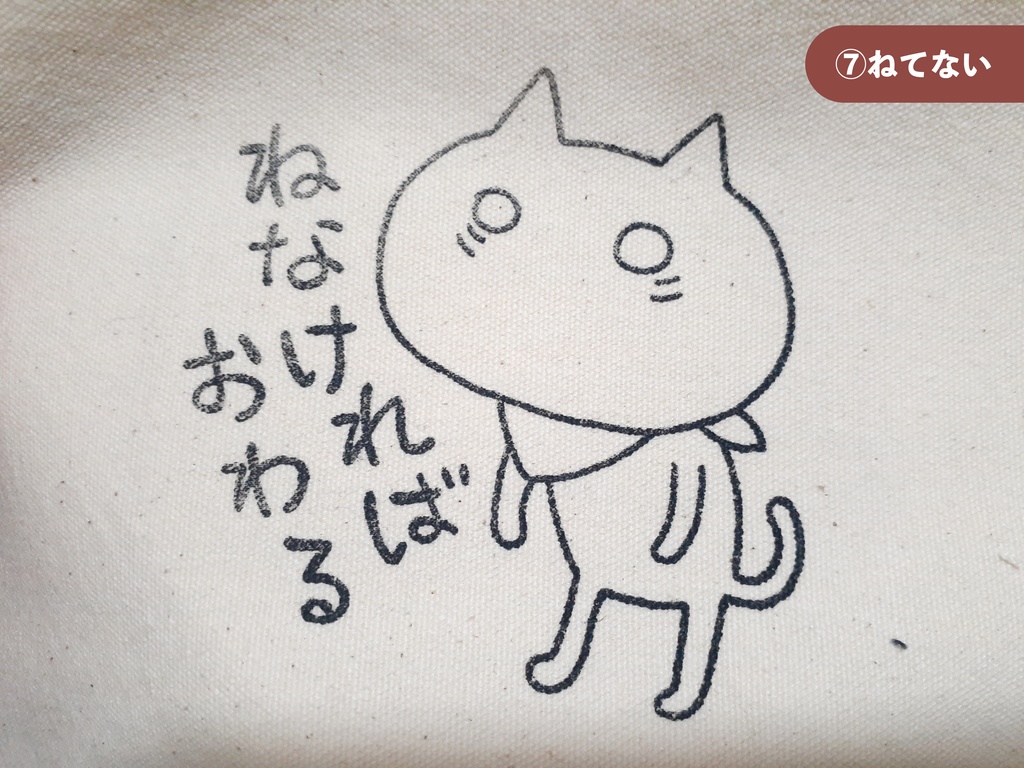 ⑦ねてない
ねなければ
おわる